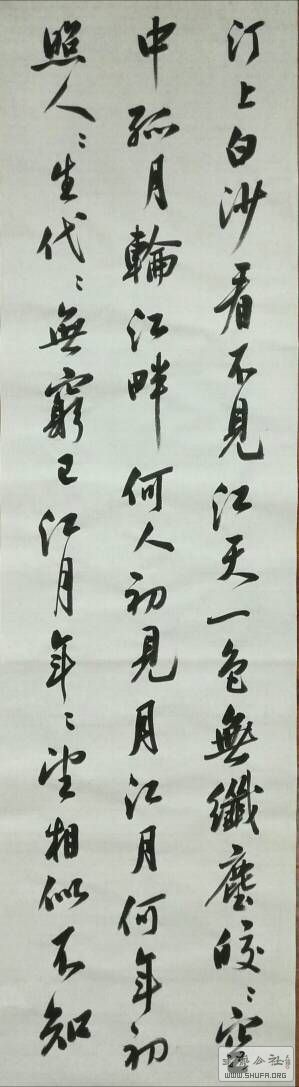 汀上白沙看不見江天一色無纖塵皎〻空
中孤月輪江畔何人初見月江月何年初
照人〻生代〻無窮已江月年〻望相似不知
WWW.SHUFA.ORG